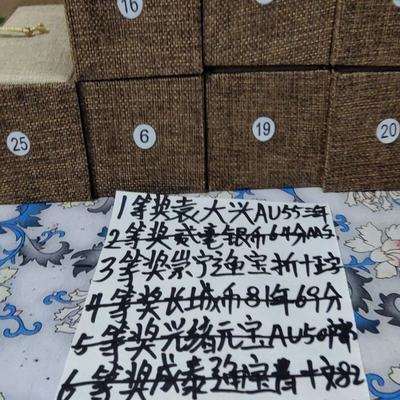 16
25
6
19
20
1等奖袁大头AU55三年
2等奖贰毫银币64分MS
3等奖崇宁通宝折十
4等奖长城币81年69分
5等奖光绪元宝AU50
6等奖咸泰 宝 十 82